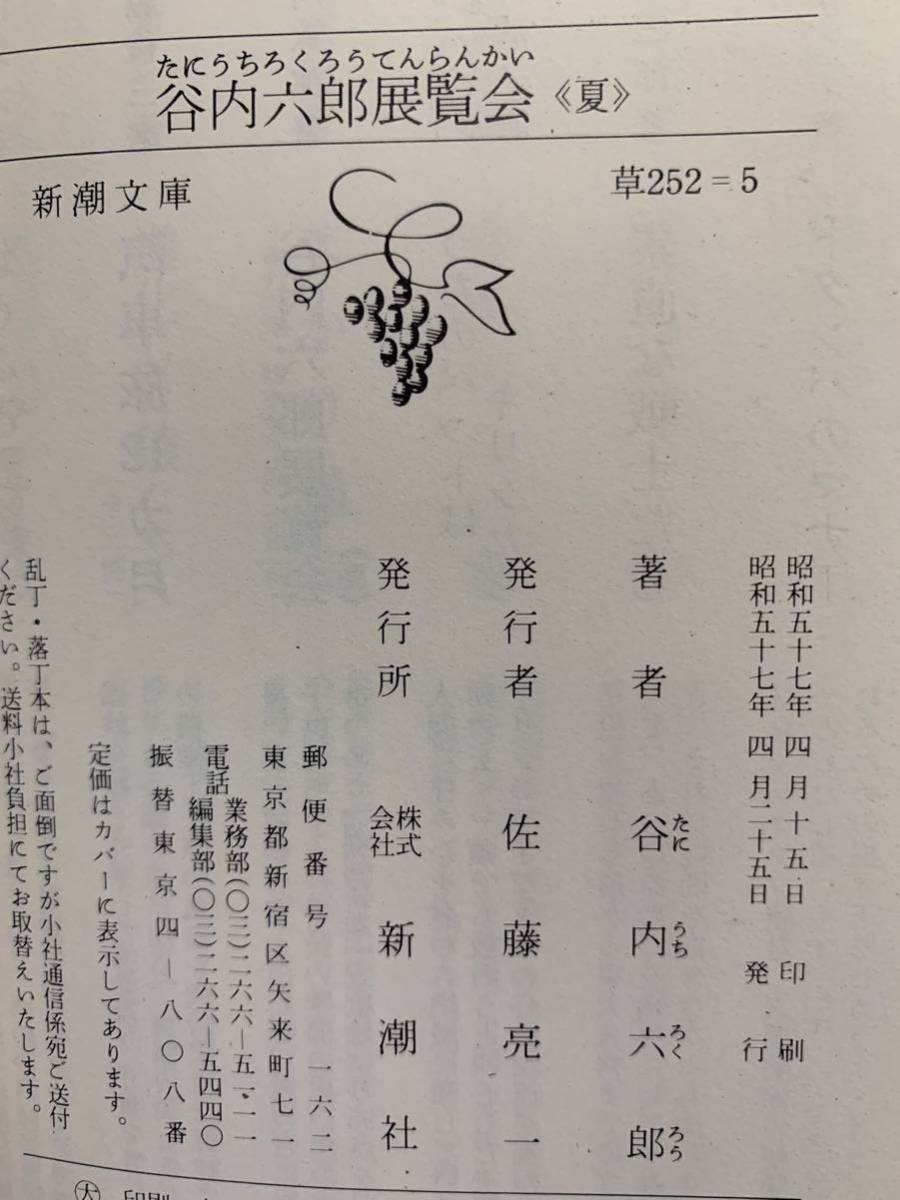 たにうちろくろうてんらんかい
谷内六郎展覧会《夏》
新潮文庫
草252=5
昭和五十七年 四月十五日 印刷
昭和五十七年 四月二十五日 発行
著者 谷内六郎
たにうちろくろう
発行者 佐藤亮一
発行所 株式会社 新潮社
郵便番号 一六二
東京都新宿区矢来町七一
電話 業務部(〇三)二六六―五一一一
編集部(〇三)二六六―五四四〇
振替東京四―八〇八番
定価はカバーに表示してあります。
乱丁・落丁本は、ご面倒ですが小社通信係宛ご送付
ください。送料小社負担にてお取替えいたします。